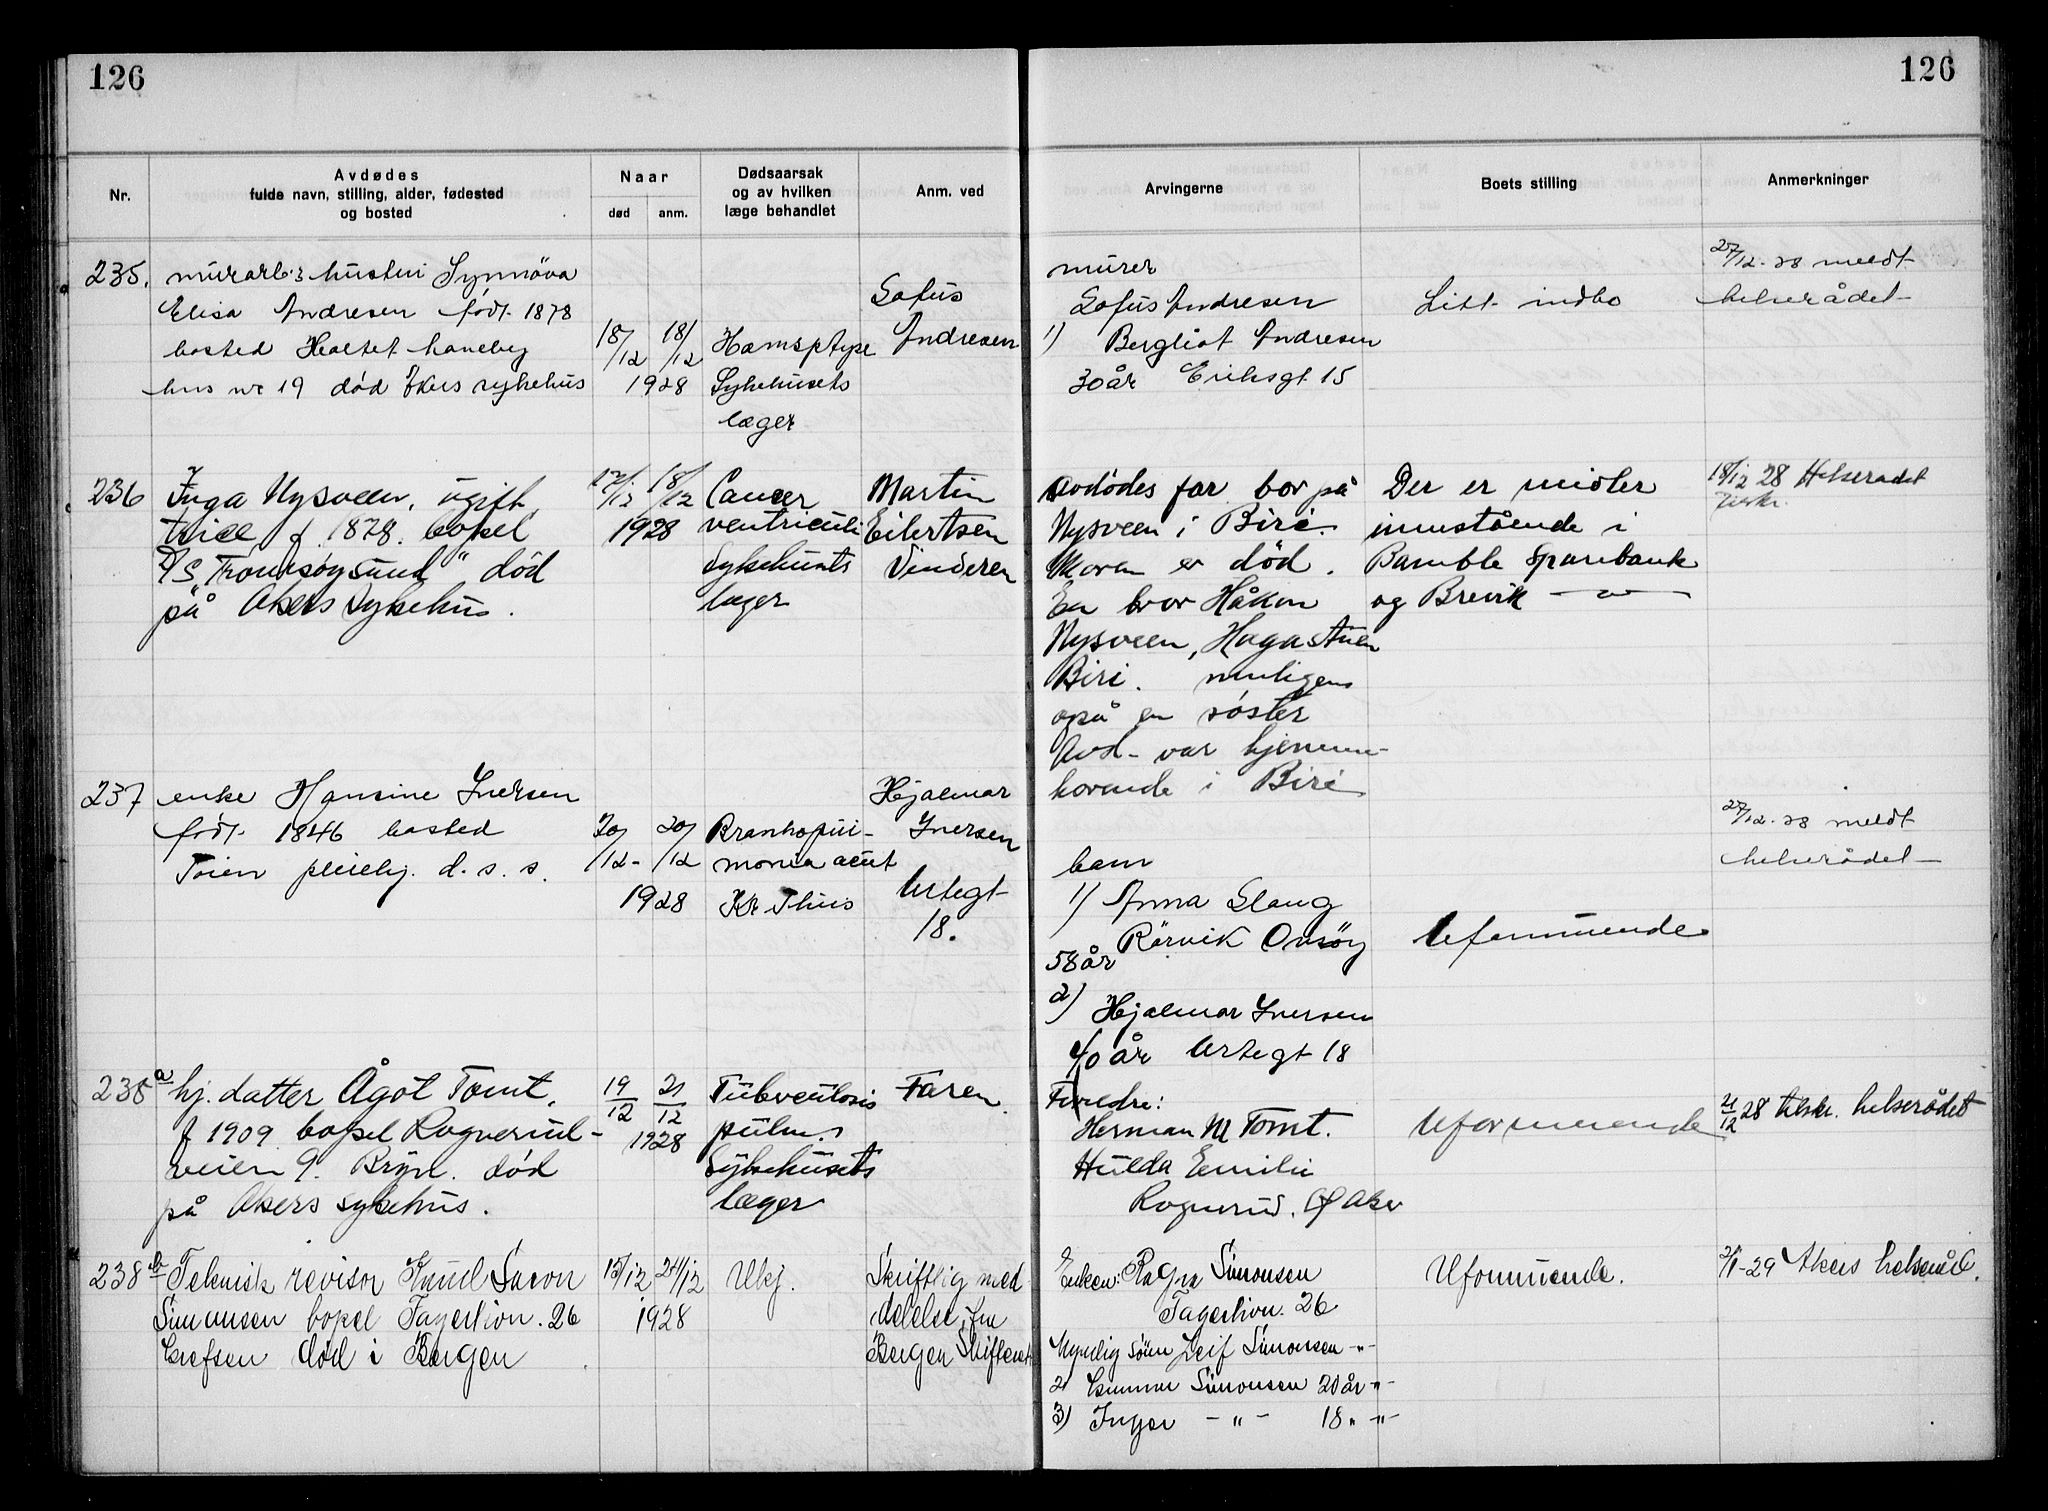 126
126
Nr.
Avdødes
fulde navn, stilling, alder, fødested
og bosted
Naar
død
anm.
Dødsaarsak
og av hvilken
læge behandlet
Anm. ved
Arvingerne
Boets stilling
Anmerkninger
235.
murarb.s hustru Synnöva
Elisa Andresen født 1878
bosted
hus nr 19 død Akers sykehus
18/12
18/12
1928
Sykehusets
læger
Sofus
Andresen
murer
Sofus Andresen
1) Bergliot Andresen
30 år Eriksgt 15
Litt indbo
27/12-28 meldt
helserådet
236
Inga Nysveen, ugift,
f. 1878. bopel
D/S "Tromsøysund" død
på Akers sykehus.
17/12
18/12
1928
Cancer
ventriculi
Sykehusets
læger
Martin
Eilertsen
Vinderen
Avdødes far bor på
Nysveen i Biri.
Moren er død.
En bror Håkon
Nysveen, Hagastuen
Biri. muligens
også en søster
Avd. var hjemme-
hörende i Biri
Der er midler
innestående i
Bamble Sparebank
og Brevik -"-
18/12 28 Helserådet
tilskr.
237
enke Hansine Iversen
født 1846 bosted
Töien pleiehj. d. s. s.
20/12-
20/12
1928
Bronkopni-
monia acut
Kr Thus
Hjalmar
Iversen
Urtegt
18.
barn
1) Anna Slang
Rörvik Onsöy
58 år
2)
Hjalmar Iversen
40 år Urtegt 18
Uformuende
27/12-28 meldt
helserådet
238 a
hj. datter Ågot Tomt.
f 1909 bopel Rognerud-
veien 9. Bryn. død
på Akers sykehus.
19/12
21/12
1928
Tuberculosis
pulm.
Sykehusets
læger
Faren.
Foreldre:
Herman M Tomt.
Hulda Emilie
Rognerud. Ø Aker
Uformuende
21/12 28 tilskr. helserådet
238 b
Teknisk revisor Knud
Simonsen bopel Fagerlivn. 26
Grefsen død i Bergen
15/12
24/12
1928
Ubkj.
Skriftlig med
delelse fra
Bergen Skifterett
Enken: Ragna Simonsen
Fagerlivn. 26
Myndig sönn Leif Simonsen -"-
2) Gunnar Simonsen 20 år -"-
3) Inger -"- 18 " -"-
Uformuende.
2/1-29 Akers helseråd.